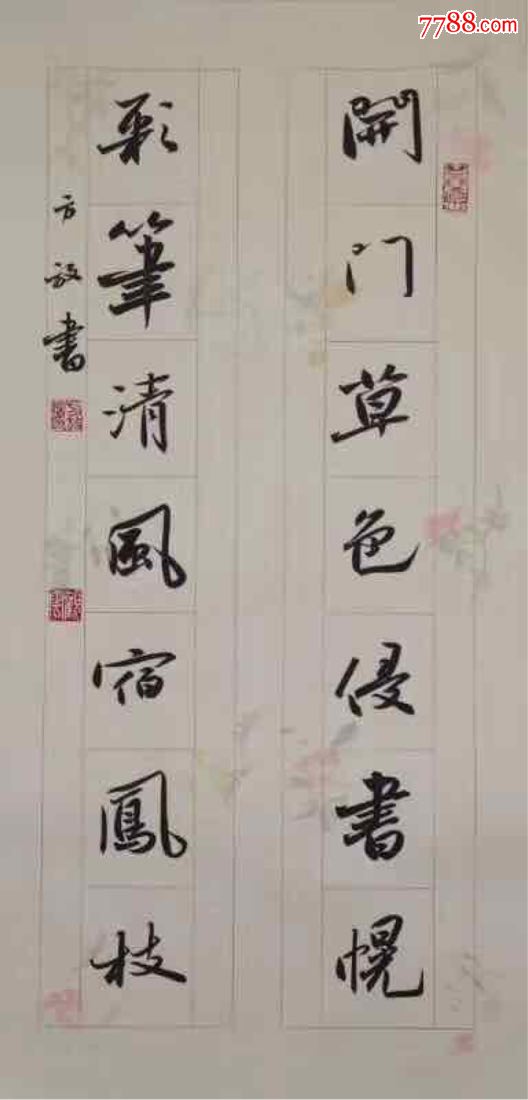 7788.com
開门草色侵書幌
彩筆清風宿鳳枝
方放書